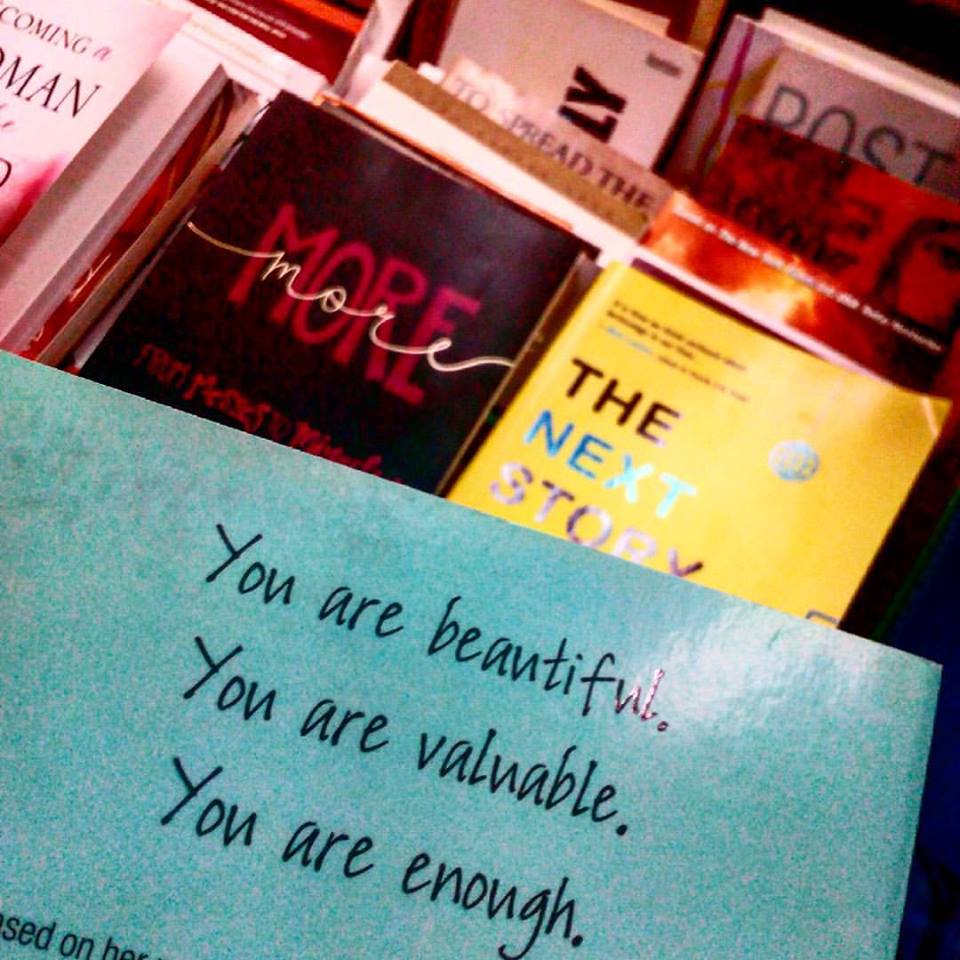 COMING a
OMAN
LY
TO SPREAD THE
POST
MORE
more
FROM Messes TO
THE
NEXT
STORY
You are beautiful.
You are valuable.
You are enough.
ased on her